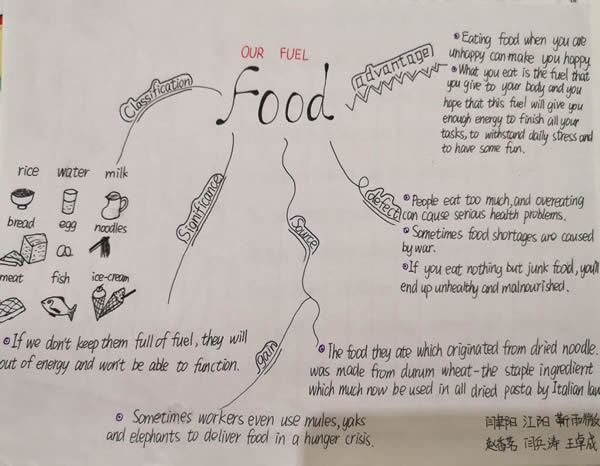 OUR FUEL
Food
Classification
advantage
Significance
Source
defect
gain
Eating food when you are
unhappy can make you happy
What you eat is the fuel that
you give to your body and you
hope that this fuel will give you
enough energy to finish all your
tasks, to withstand daily stress and
to have some fun.
rice water milk
bread egg noodles
meat fish ice-cream
People eat too much, and overeating
can cause serious health problems.
Sometimes food shortages are caused
by war.
If you eat nothing but junk food, you'll
end up unhealthy and malnourished.
If we don't keep them full of fuel, they will
out of energy and won't be able to function.
The food they ate which originated from dried noodle.
was made from durum wheat-the staple ingredient
which much now be used in all dried pasta by Italian law
Sometimes workers even use mules, yaks
and elephants to deliver food in a hunger crisis.
江阳 靳雨
闫兵涛 王卓成